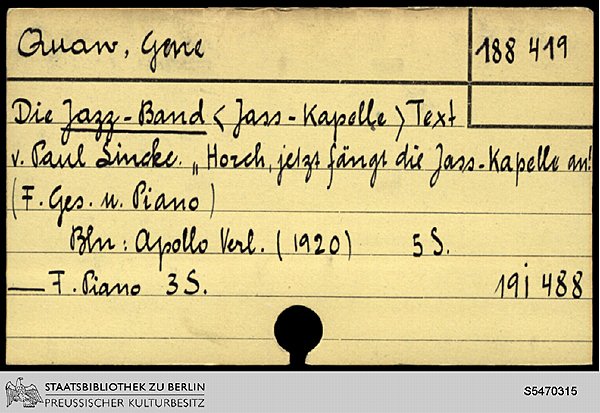 Quaw, Gene
188 419
Die Jazz-Band < Jass-Kapelle > Text
v. Paul Lincke. „Horch, jetzt fängt die Jass-Kapelle an!
(F. Ges. u. Piano)
Bln: Apollo Verl. (1920) 5 S.
— F. Piano 3 S. 19i 488
STAATSBIBLIOTHEK ZU BERLIN
PREUSSISCHER KULTURBESITZ
S5470315